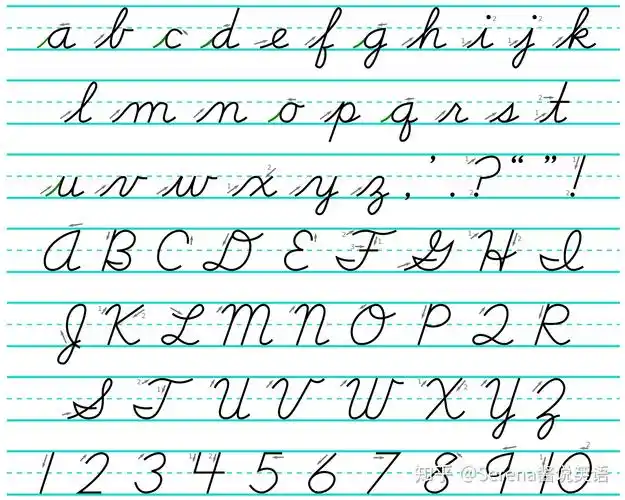 a b c d e f g h i j k
l m n o p q r s t
u v w x y z , ' . ? “ ” !
A B C D E F G H I
J K L M N O P Q R
S T U V W X Y Z
1 2 3 4 5 6 7 8 9 10
知乎 @Serena酱说英语